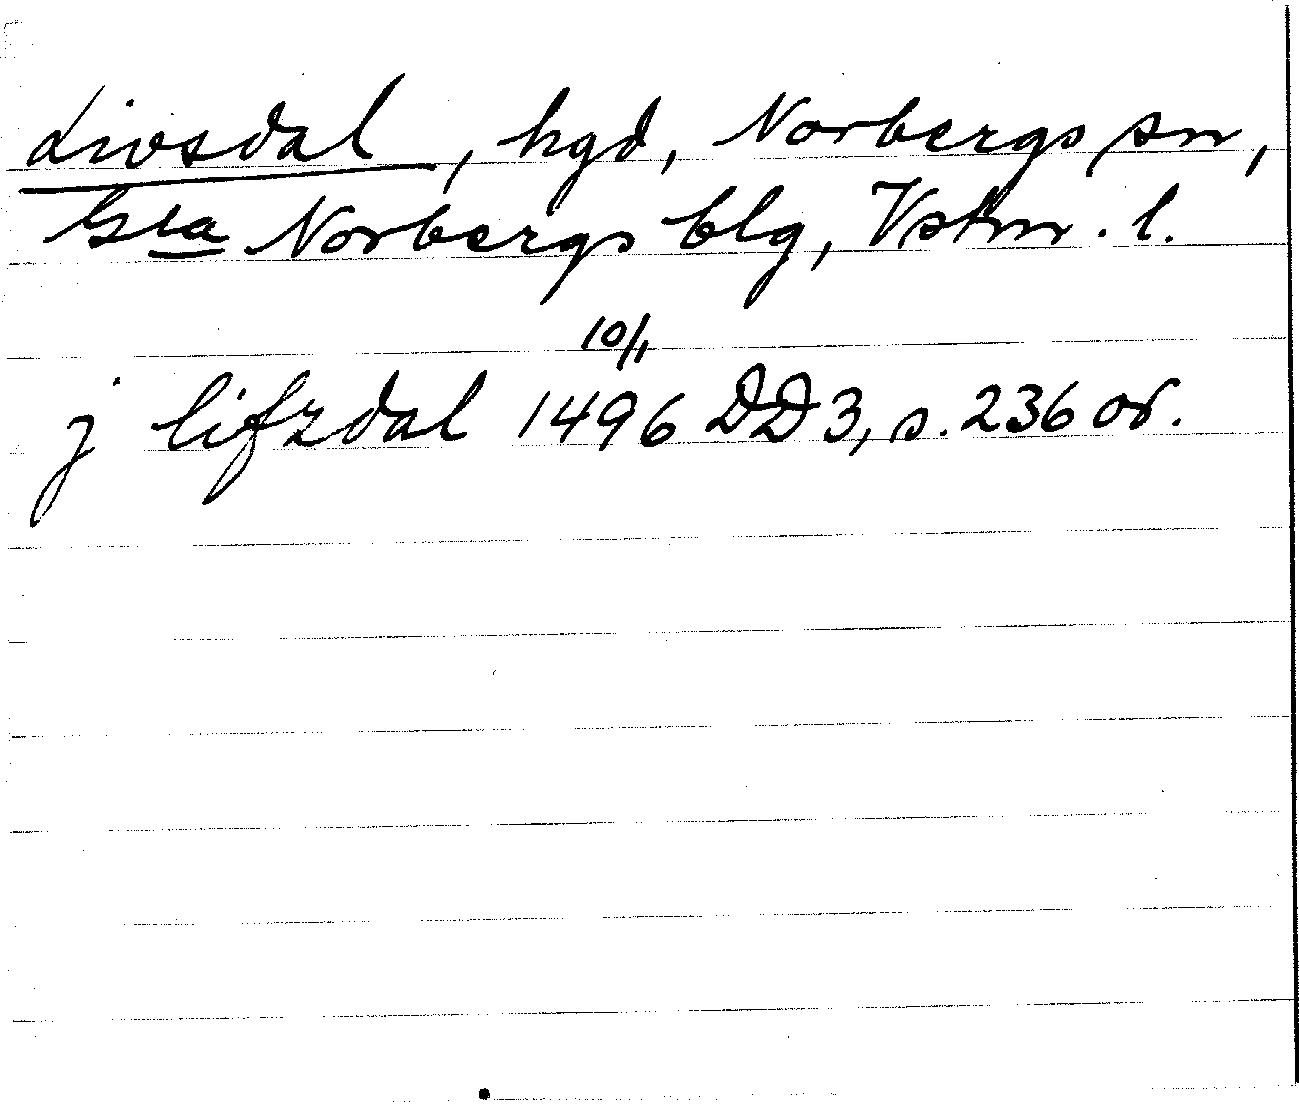 Livsdal, hgd, Norbergs sn,
Gla Norbergs blg, Vstm. l.
10/1
j lifzdal 1496 DD3, s. 236 or.